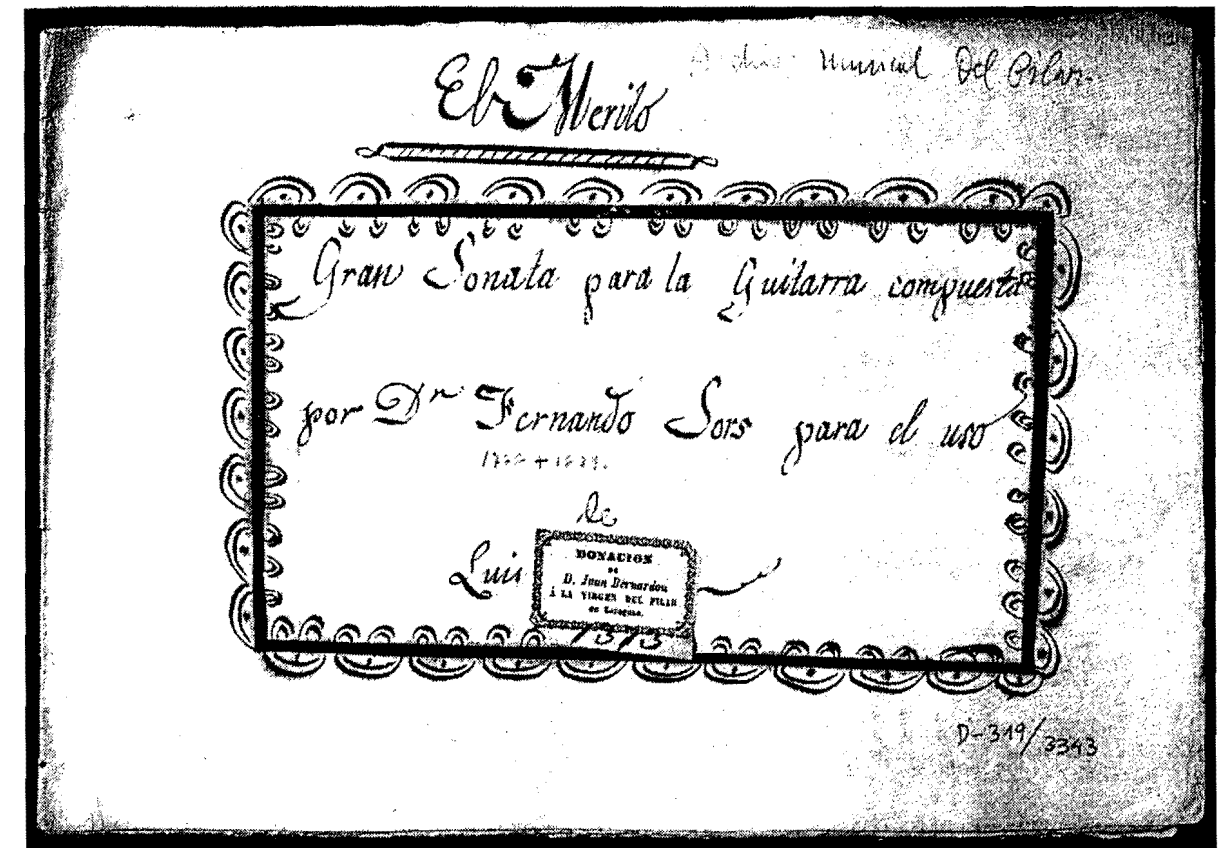 Archivo Musical Del Pilar.
El Merito
Gran Sonata para la Guitarra compuesta
por Dn Fernando Sors para el uso
de
Luis
DONACION
DE
D. Juan Bernardon
Á LA VIRGEN DEL PILAR
de Zaragoza.
D-319/3343